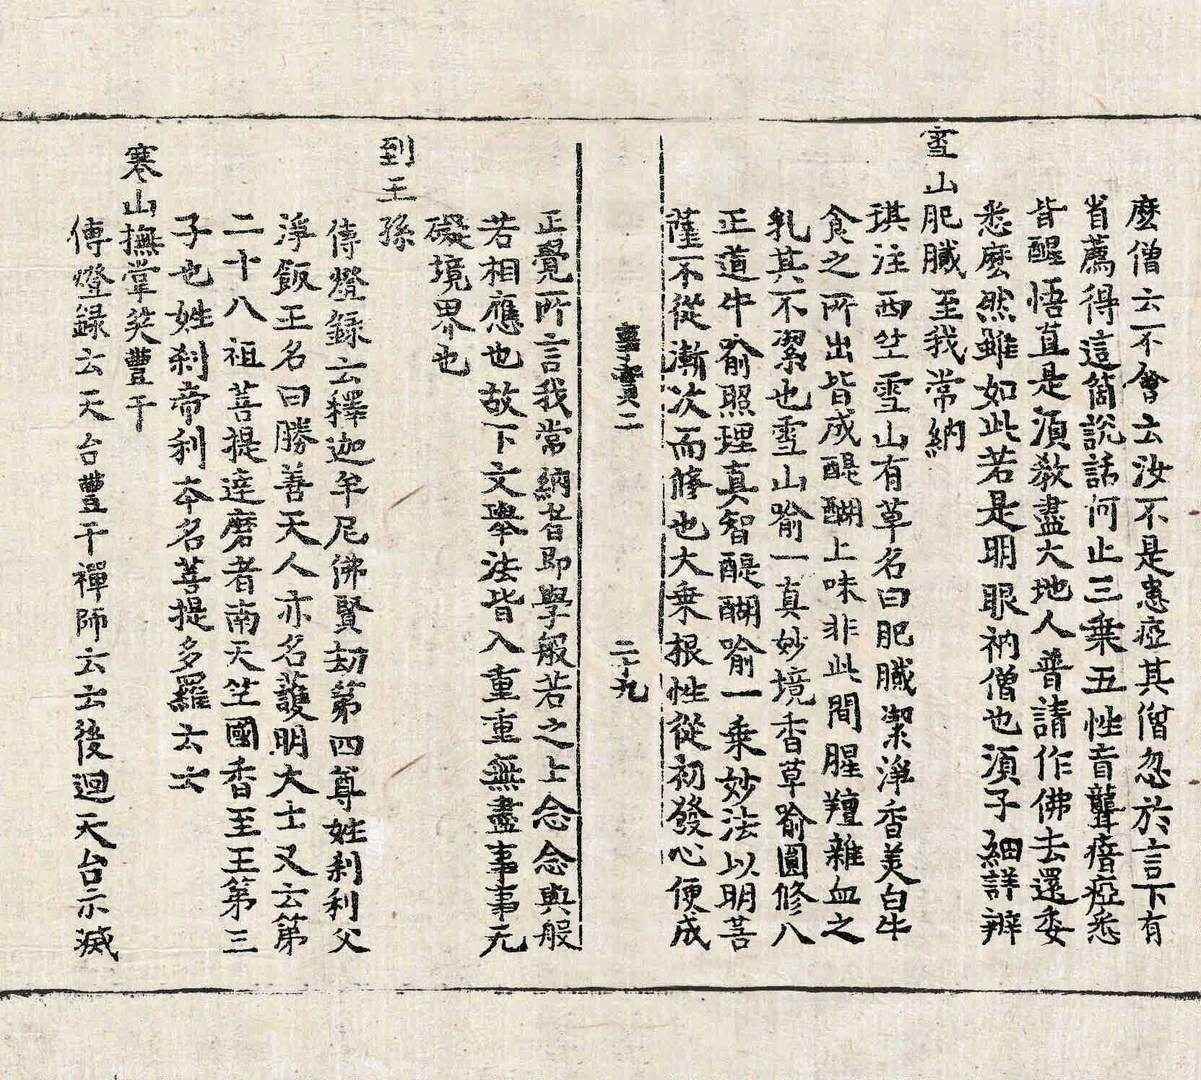 麼僧云不會云汝不是患瘂其僧忽於言下有
省薦得這箇說話何止三乗五性盲聾瘖瘂悉
皆醒悟直是湏敎盡大地人普請作佛去還委
悉麼然雖如此若是明眼衲僧也湏子細詳辨
雪山肥膩至我常納
琪注西竺雪山有草名曰肥膩潔淨香美白牛
食之所出皆成醍醐上味非此間腥羶雜血之
乳其不潔也雪山喻一真妙境香草喻圓修八
正道牛喻照理真智醍醐喻一乗妙法以明菩
薩不從漸次而脩也大乗根性從初發心便成
二十九
正覺所言我常納者即學般若之上念念與般
若相應也故下文舉法皆入重重無盡事事无
礙境界也
到王孫
傳燈録云釋迦牟尼佛賢劫第四尊姓刹利父
淨飯王名曰勝善天人亦名護明大士又云第
二十八祖菩提達磨者南天竺國香至王第三
子也姓刹帝利本名菩提多羅云云
寒山撫掌笑豊干
傳燈録云天台豊干禪師云云後迴天台示滅